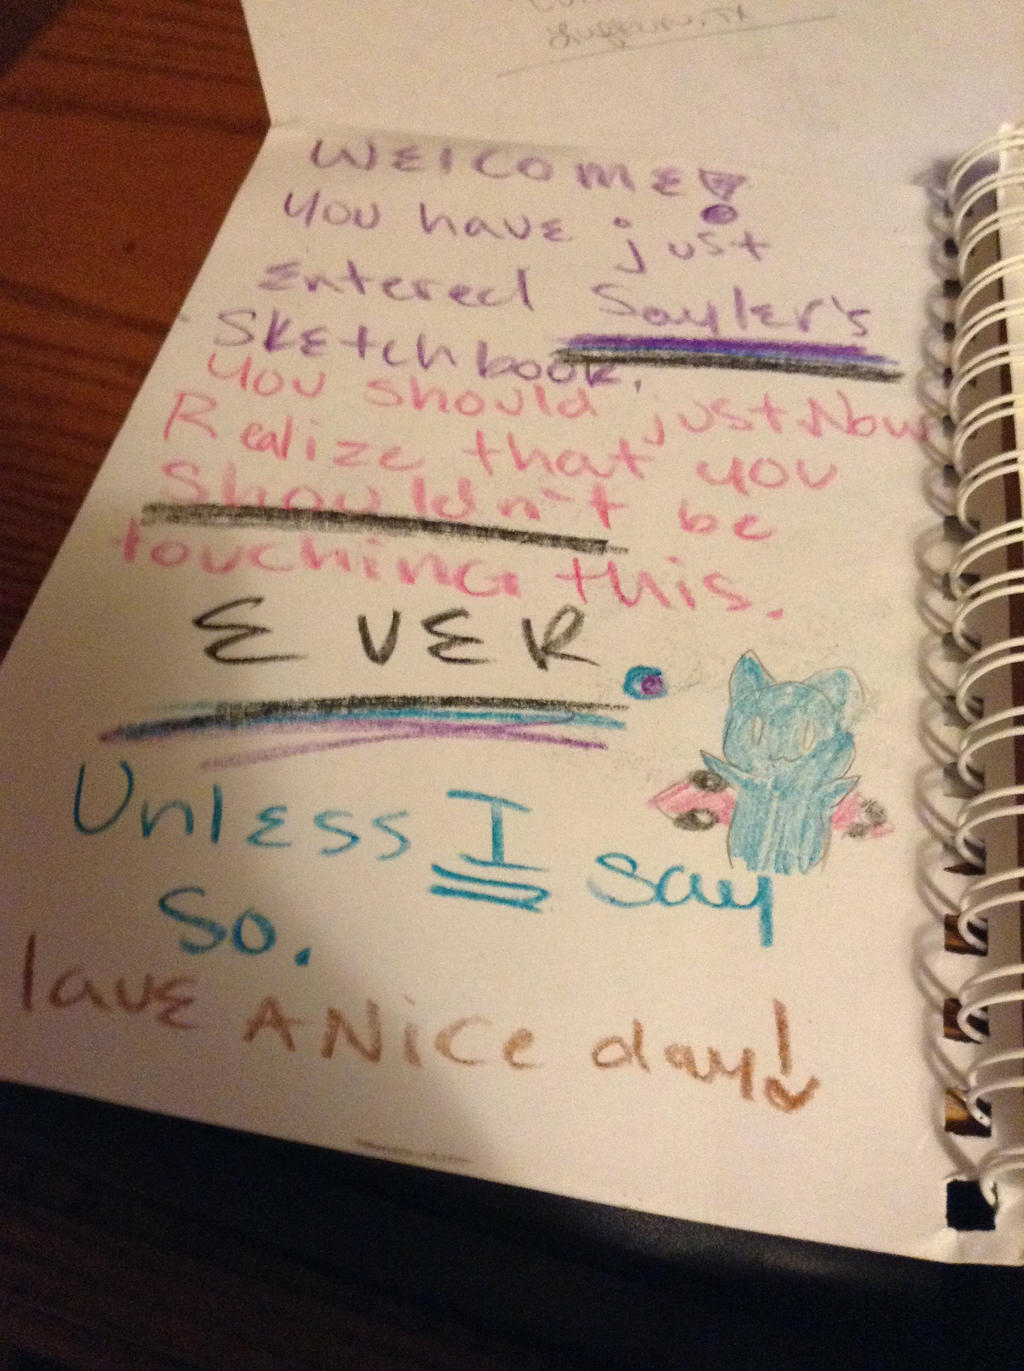 WElcomE!
You havE just
EntEred SaylEr's
SkEtchbook.
You should just Now
Realize that you
Shouldn't be
touching this.
EVER.
UnlEss I say
So.
havE A NiCe day!